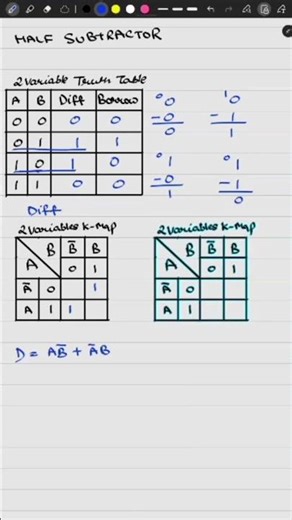 HALF SUBTRACTOR
2 Variable Truth Table
A B Diff Borrow
0 0 0 0
0 1 1 1
1 0 1 0
1 1 0 0
0 0 - 0 0
1 0 - 1 1
0 1 - 0 1
0 1 - 1 0
Diff
2 Variables K-Map
B B̅ B
A 0 1
A̅ 0 1
A 1 1
2 Variables K-Map
B B̅ B
A 0 1
A̅ 0
A 1
D = AB̅ + A̅B